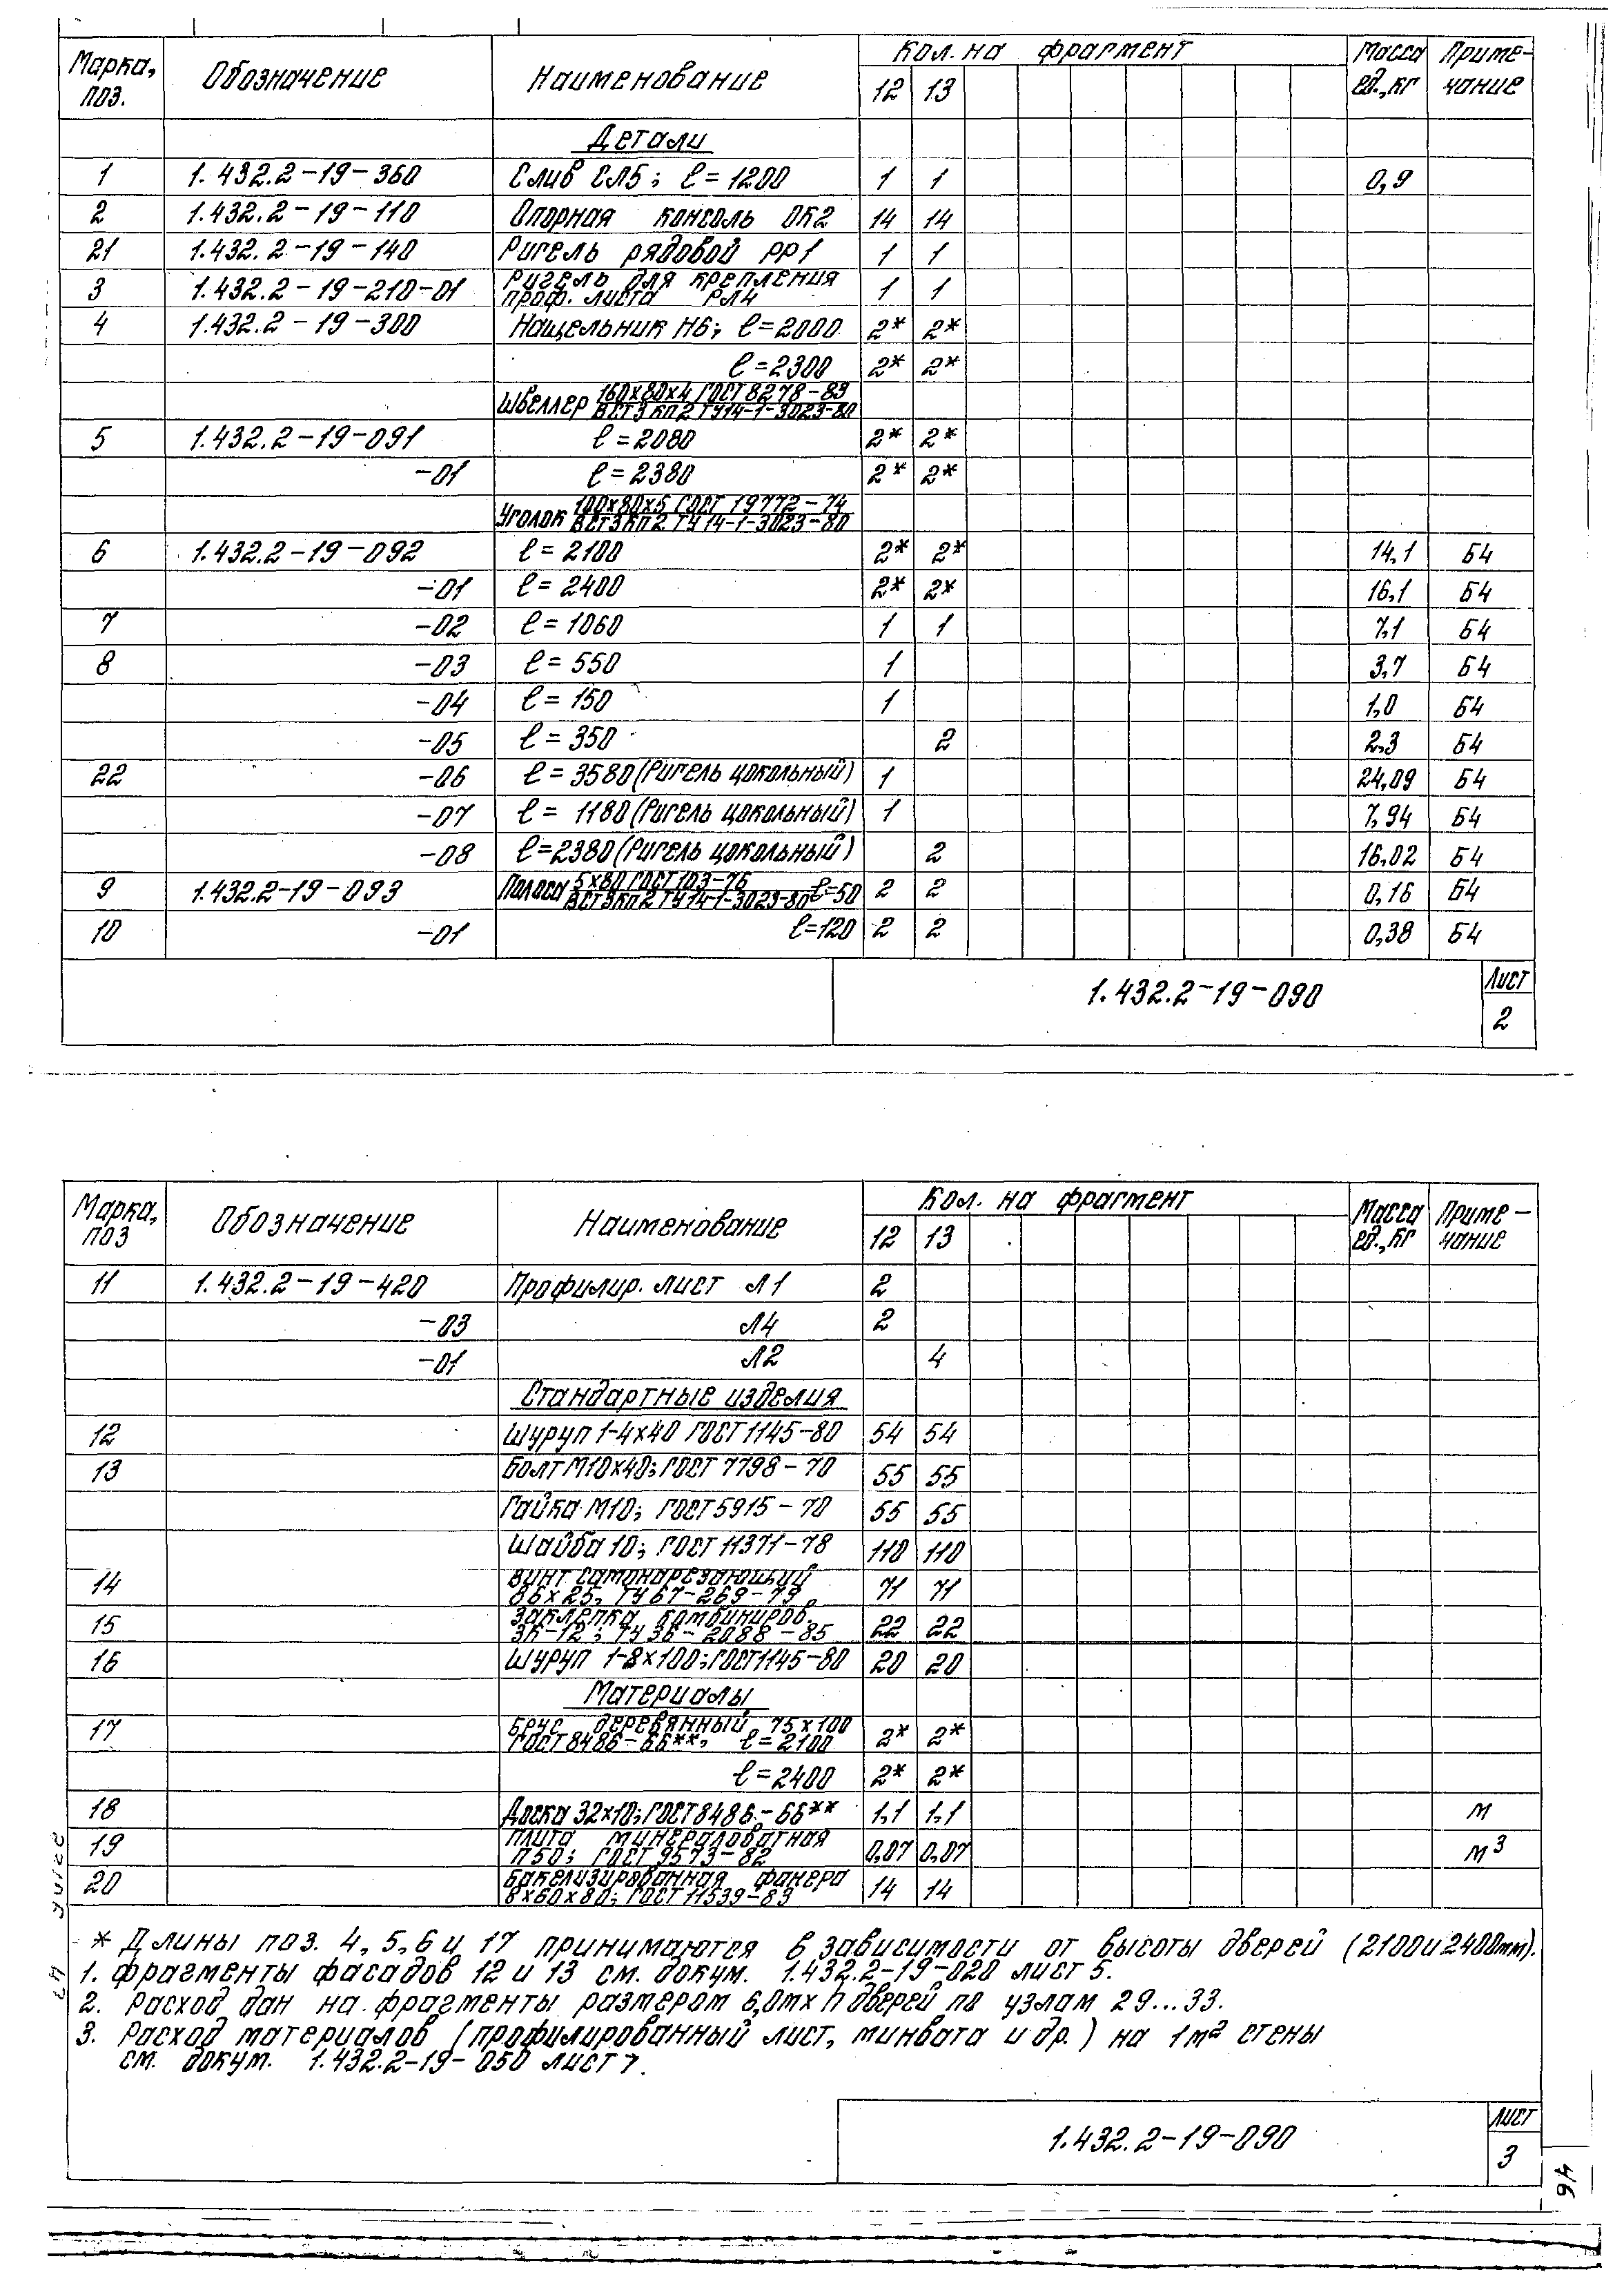 Марка, поз. Обозначение Наименование Кол. на фрагмент Масса ед., кг Приме-чание
12 13
Детали
1 1.432.2-19-360 Слив СЛ5; ℓ=1200 1 1 0,9
2 1.432.2-19-110 Опорная консоль ОК2 14 14
21 1.432.2-19-140 Ригель рядовой РР1 1 1
3 1.432.2-19-210-01 Ригель для крепления проф. листа РЛ4 1 1
4 1.432.2-19-300 Нащельник Н6; ℓ=2000 2* 2*
ℓ=2300 2* 2*
Швеллер 160х80х4 ГОСТ 8278-83
ВСт3кп2 ТУ14-1-3023-80
5 1.432.2-19-091 ℓ=2080 2* 2*
-01 ℓ=2380 2* 2*
Уголок 100х80х5 ГОСТ 19772-74
ВСт3кп2 ТУ14-1-3023-80
6 1.432.2-19-092 ℓ=2100 2* 2* 14,1 БЧ
-01 ℓ=2400 2* 2* 16,1 БЧ
7 -02 ℓ=1060 1 1 7,1 БЧ
8 -03 ℓ=550 1 3,7 БЧ
-04 ℓ=150 1 1,0 БЧ
-05 ℓ=350 2 2,3 БЧ
22 -06 ℓ=3580 (Ригель цокольный) 1 24,09 БЧ
-07 ℓ=1180 (Ригель цокольный) 1 7,94 БЧ
-08 ℓ=2380 (Ригель цокольный) 2 16,02 БЧ
9 1.432.2-19-093 Полоса 5х80 ГОСТ 103-76
ВСт3кп2 ТУ14-1-3023-80 ℓ=50 2 2 0,16 БЧ
10 -01 ℓ=120 2 2 0,38 БЧ
1.432.2-19-090 Лист
2
Марка, поз Обозначение Наименование Кол. на фрагмент Масса ед., кг Приме-чание
12 13
11 1.432.2-19-420 Профилир. лист Л1 2
-03 Л4 2
-01 Л2 4
Стандартные изделия
12 Шуруп 1-4х40 ГОСТ 1145-80 54 54
13 Болт М10х40; ГОСТ 7798-70 55 55
Гайка М10; ГОСТ 5915-70 55 55
Шайба 10; ГОСТ 11371-78 110 110
14 Винт самонарезающий
В6х25, ТУ 67-269-79 71 71
15 Заклепка комбиниров.
ЗК-12; ТУ 36-2088-85 22 22
16 Шуруп 1-8х100; ГОСТ 1145-80 20 20
Материалы
17 Брус деревянный 75х100
ГОСТ 8486-66**, ℓ=2100 2* 2*
ℓ=2400 2* 2*
18 Доска 32х10; ГОСТ 8486-66** 1,1 1,1 м
19 Плита минераловатная
П50; ГОСТ 9573-82 0,07 0,07 м³
20 Бакелизированная фанера
8х60х80; ГОСТ 11539-83 14 14
* Длины поз. 4, 5, 6 и 17 принимаются в зависимости от высоты дверей (2100 и 2400мм).
1. Фрагменты фасадов 12 и 13 см. докум. 1.432.2-19-020 лист 5.
2. Расход дан на фрагменты размером 6,0м х h дверей по узлам 29...33.
3. Расход материалов (профилированный лист, минвата и др.) на 1м² стены
см. докум. 1.432.2-19-050 лист 7.
1.432.2-19-090 Лист
3
46